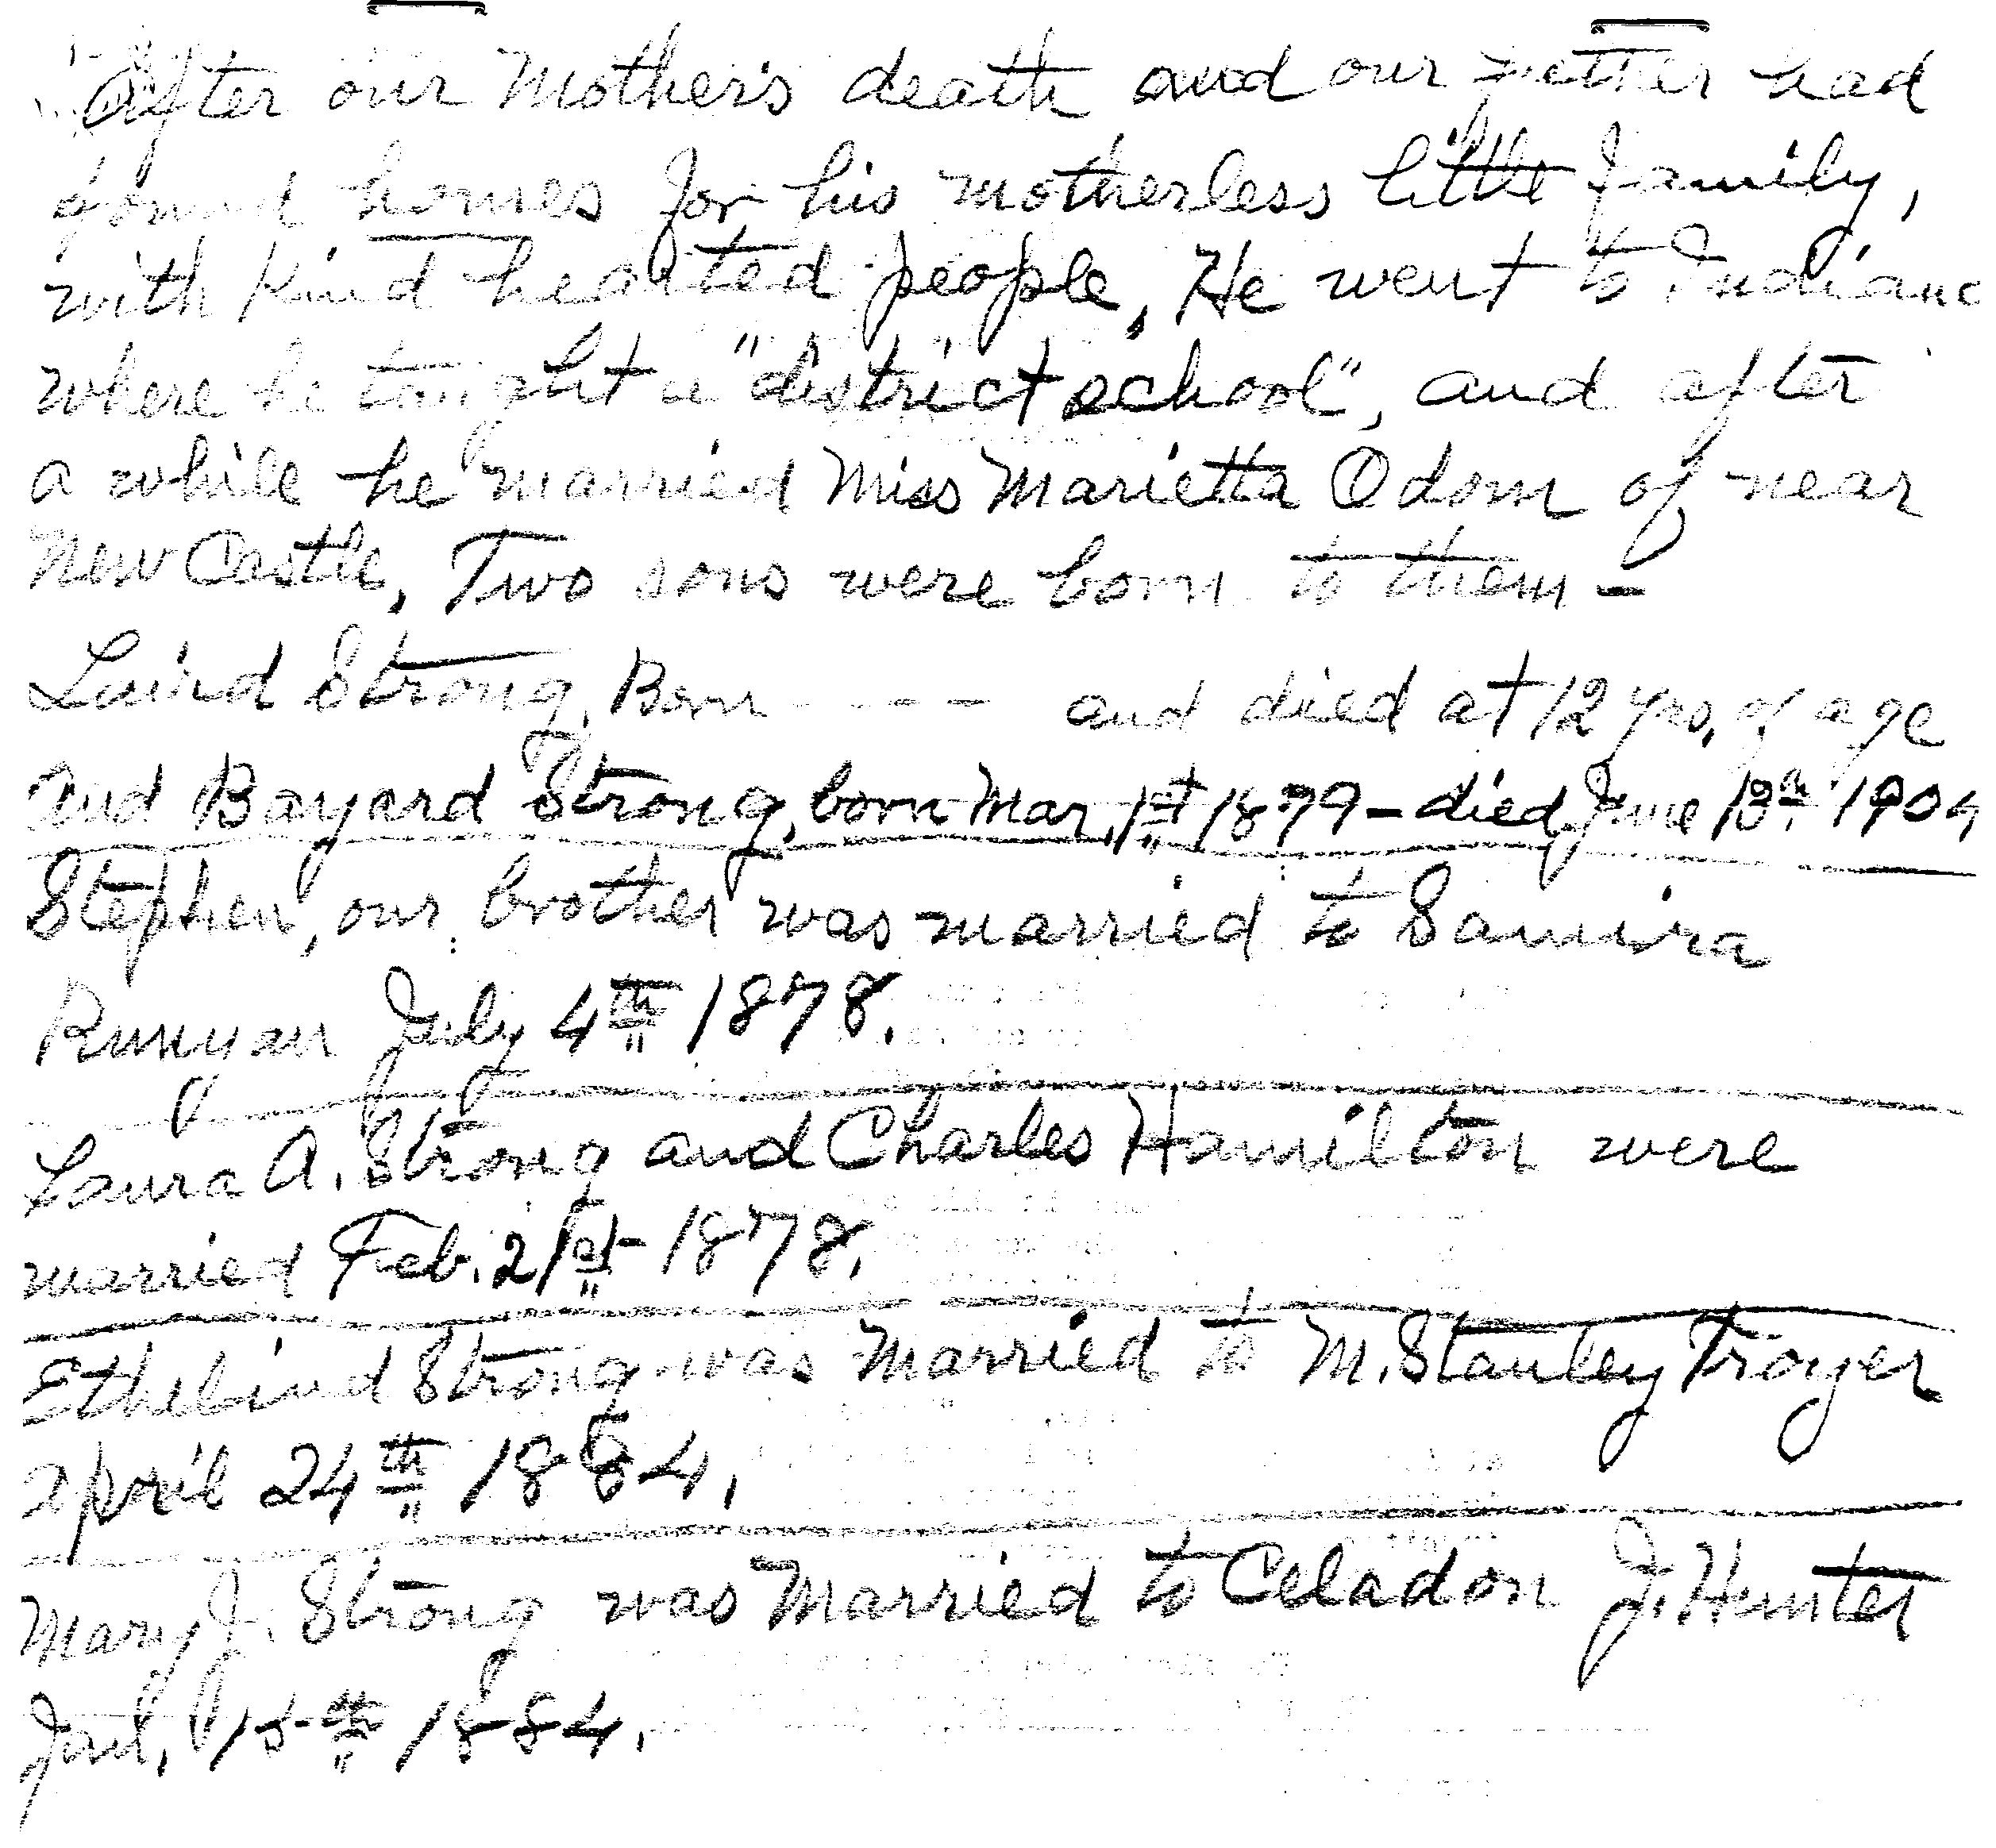 After our Mother's death and our father had
found homes for his motherless little family,
with kind hearted people, He went to Indiana
where he taught a "district school", and after
a while he married Miss Marietta Odom of near
New Castle, Two sons were born to them -
Laird Strong, Born - - - - and died at 12 yrs, of age
and Bayard Strong, born Mar, 1st 1879 - died June 13th 1904
Stephen, our brother was married to Samira
Runyan July 4th 1878.
Laura A. Strong and Charles Hamilton were
married Feb. 21st 1878,
Ethelind Strong was Married to M. Stanley Troyer
April 24th 1884,
Mary J. Strong was Married to Celadon J. Hunter
15th 1884,